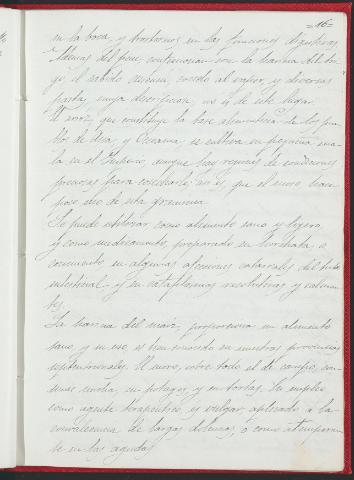 =16=
en la boca, y trastornos en las funciones digestivas.
Además del pan, confeccionan con la harina del tri-
go, el sabido cuscus, cocido al vapor, y diversas
pastas, cuya descripcion, no es de este lugar.
El arroz, que constituye la base alimenticia de los pue-
blos de Asia, y Oceania, se cultiva en pequeña esca-
la en el Imperio, aunque hay regiones de condiciones
preciosas para cosecharle; no es que el moro, haga
poco uso de esta graminea.
Lo puede utilizar como alimento sano y ligero,
y como medicamento, preparado en horchata o
cocimiento en algunas afecciones catarrales del tubo
intestinal y en cataplasmas resolutivas y calman-
tes.
La harina del maiz, proporciona un alimento
sano, y su uso es bien conocido en nuestras provincias
septentrionales. El moro, sobre todo el de campo, con-
sume mucha, en potages, y en tortas. Se emplea
como agente terapeutico y vulgar, aplicado a la
convalecencia de largas dolencias, o como atemperan-
te en las agudas.